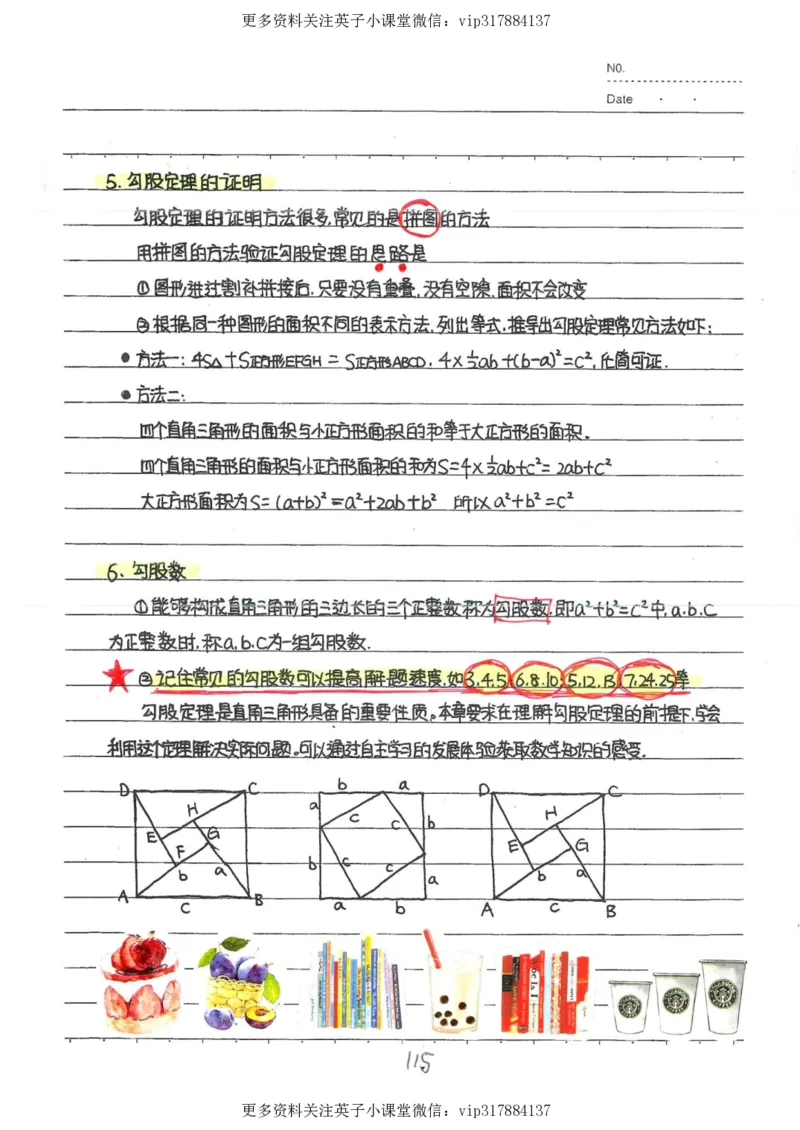 更多资料关注英子小课堂微信：vip317884137
N0.
Date
5. 勾股定理的证明
勾股定理的证明方法很多,常见的是拼图的方法
用拼图的方法验证勾股定理的思路是
①图形进过割补拼接后.只要没有重叠,没有空隙,面积不会改变
②根据同一种图形的面积不同的表示方法,列出等式,推导出勾股定理常见方法如下:
●方法一: 4S△+S正方形EFGH = S正方形ABCD, 4×½ab+(b-a)²=c², 化简可证.
●方法二:
四个直角三角形的面积与小正方形面积的和等于大正方形的面积.
四个直角三角形的面积与小正方形面积的和为S=4×½ab+c²= 2ab+c²
大正方形面积为S= (a+b)²=a²+2ab+b² 所以a²+b²=c²
6、勾股数
①能够构成直角三角形的三边长的三个正整数称为勾股数,即a²+b²=c²中,a.b.c
为正整数时,称a,b,c为一组勾股数.
②记住常见的勾股数可以提高解题速度,如3,4,5;6,8,10;5,12,13;7,24,25等
勾股定理是直角三角形具备的重要性质。本章要求在理解勾股定理的前提下,学会
利用这个定理解决实际问题。可以通过自主学习的发展体验获取数学知识的感受.
D C H E G F b a A c B
b a a c c b b c c a a b
D C H E G b a A c B
115
更多资料关注英子小课堂微信：vip317884137